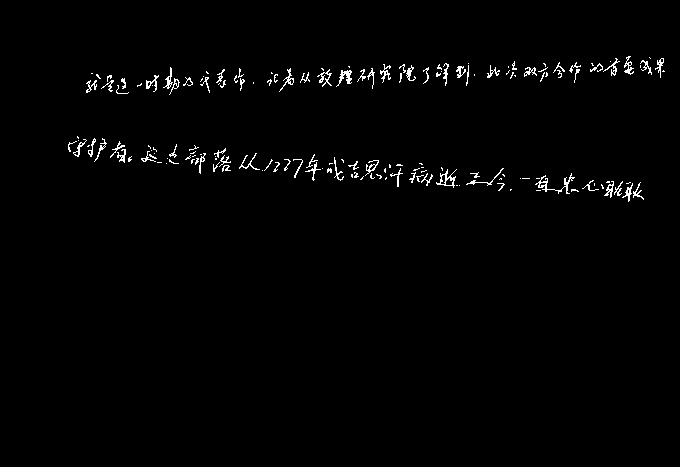 就是这一时期的代表作.记者从敦煌研究院了解到.此次双方合作的首要成果
守护者。这支部落从1227年成吉思汗病逝至今.一直忠心耿耿